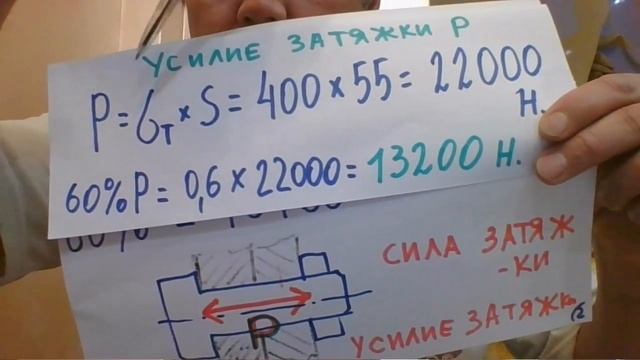 УСИЛИЕ ЗАТЯЖКИ P
P = Gт × S = 400 × 55 = 22000
Н.
60% P = 0,6 × 22000 = 13200 Н.
60%
СИЛА ЗАТЯЖ
-КИ
P
УСИЛИЕ ЗАТЯЖКИ